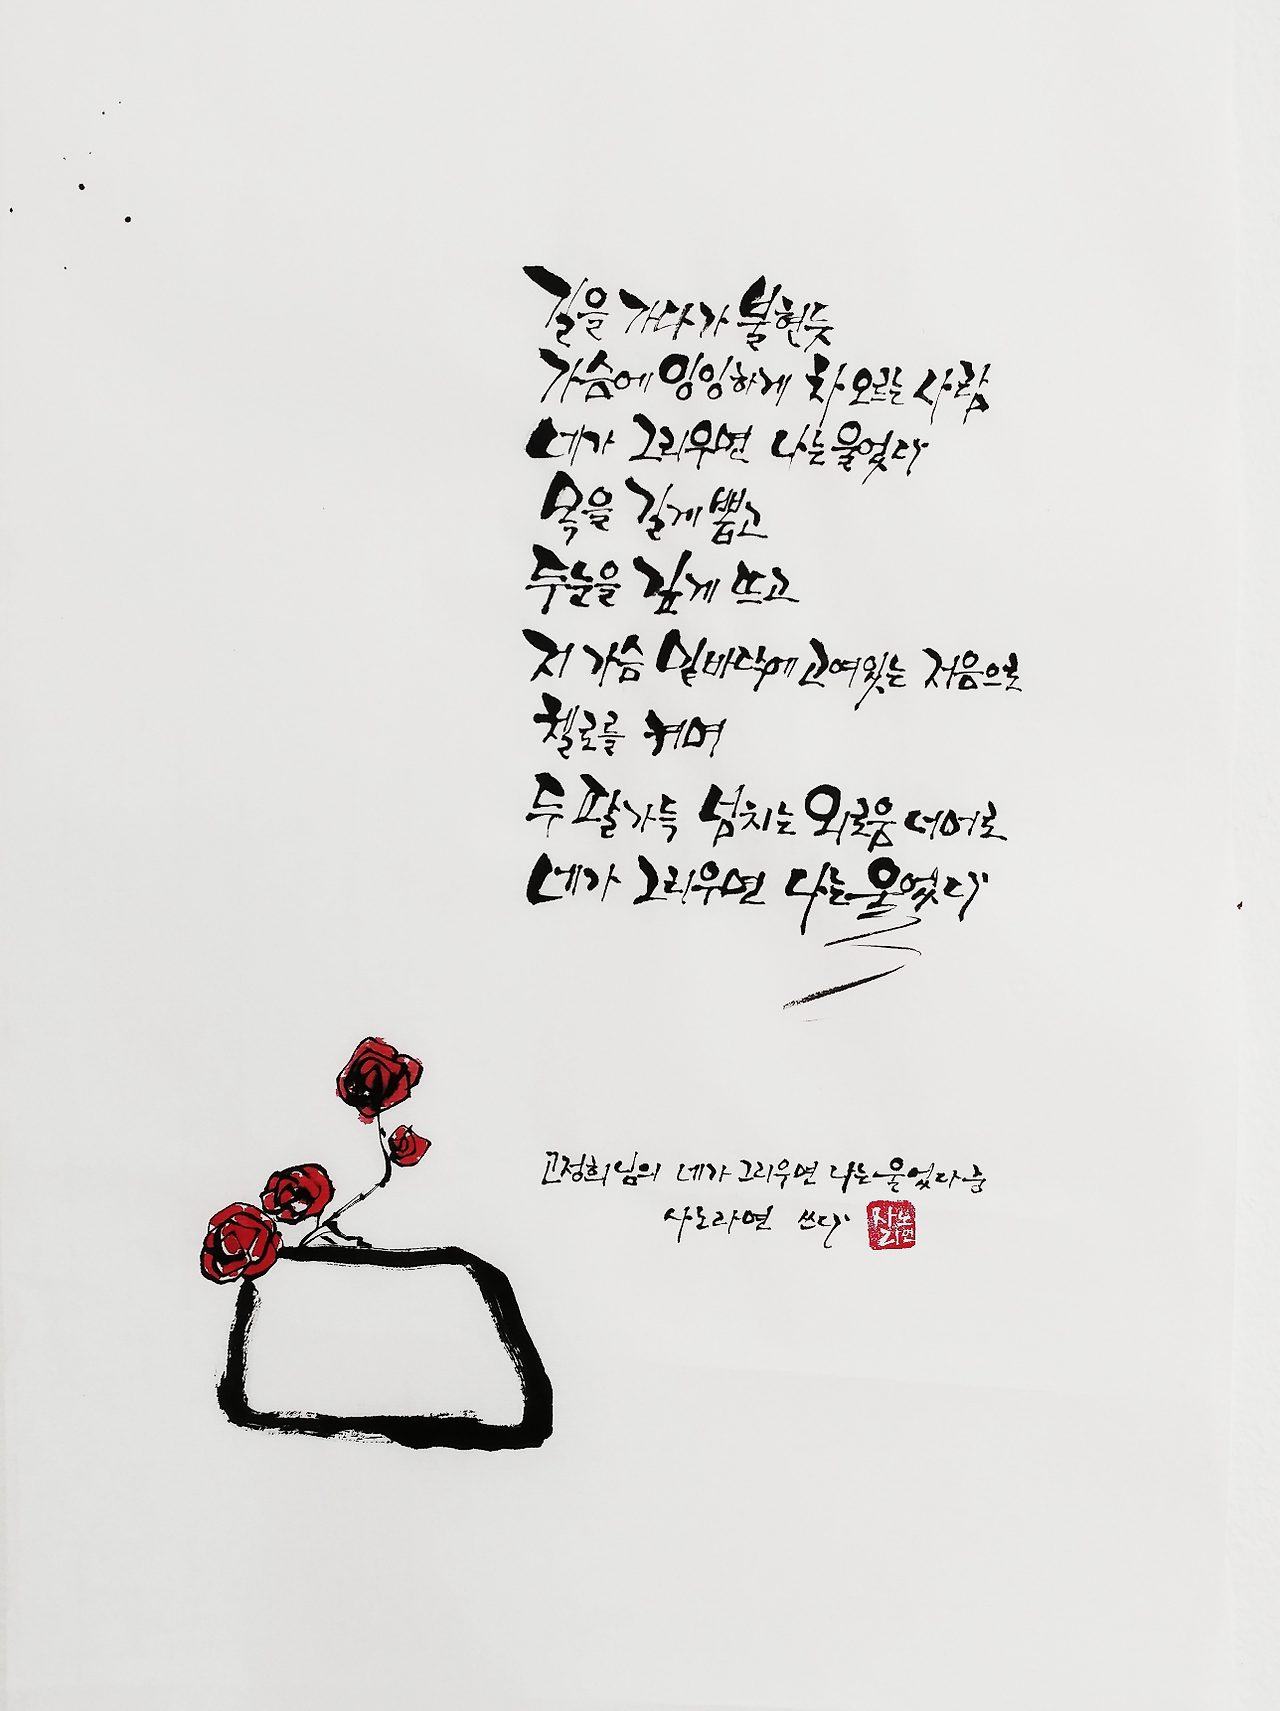 길을 가다가 불현듯
가슴에 잉잉하게 차오르는 사람
네가 그리우면 나는 울었다
목을 길게 뽑고
두 눈을 깊게 뜨고
저 가슴 밑바닥에 고여있는 저음으로
첼로를 켜며
두 팔 가득 넘치는 외로움 너머로
네가 그리우면 나는 울었다
고정희님의 네가 그리우면 나는 울었다 중
사노라면 쓰다
사노라면